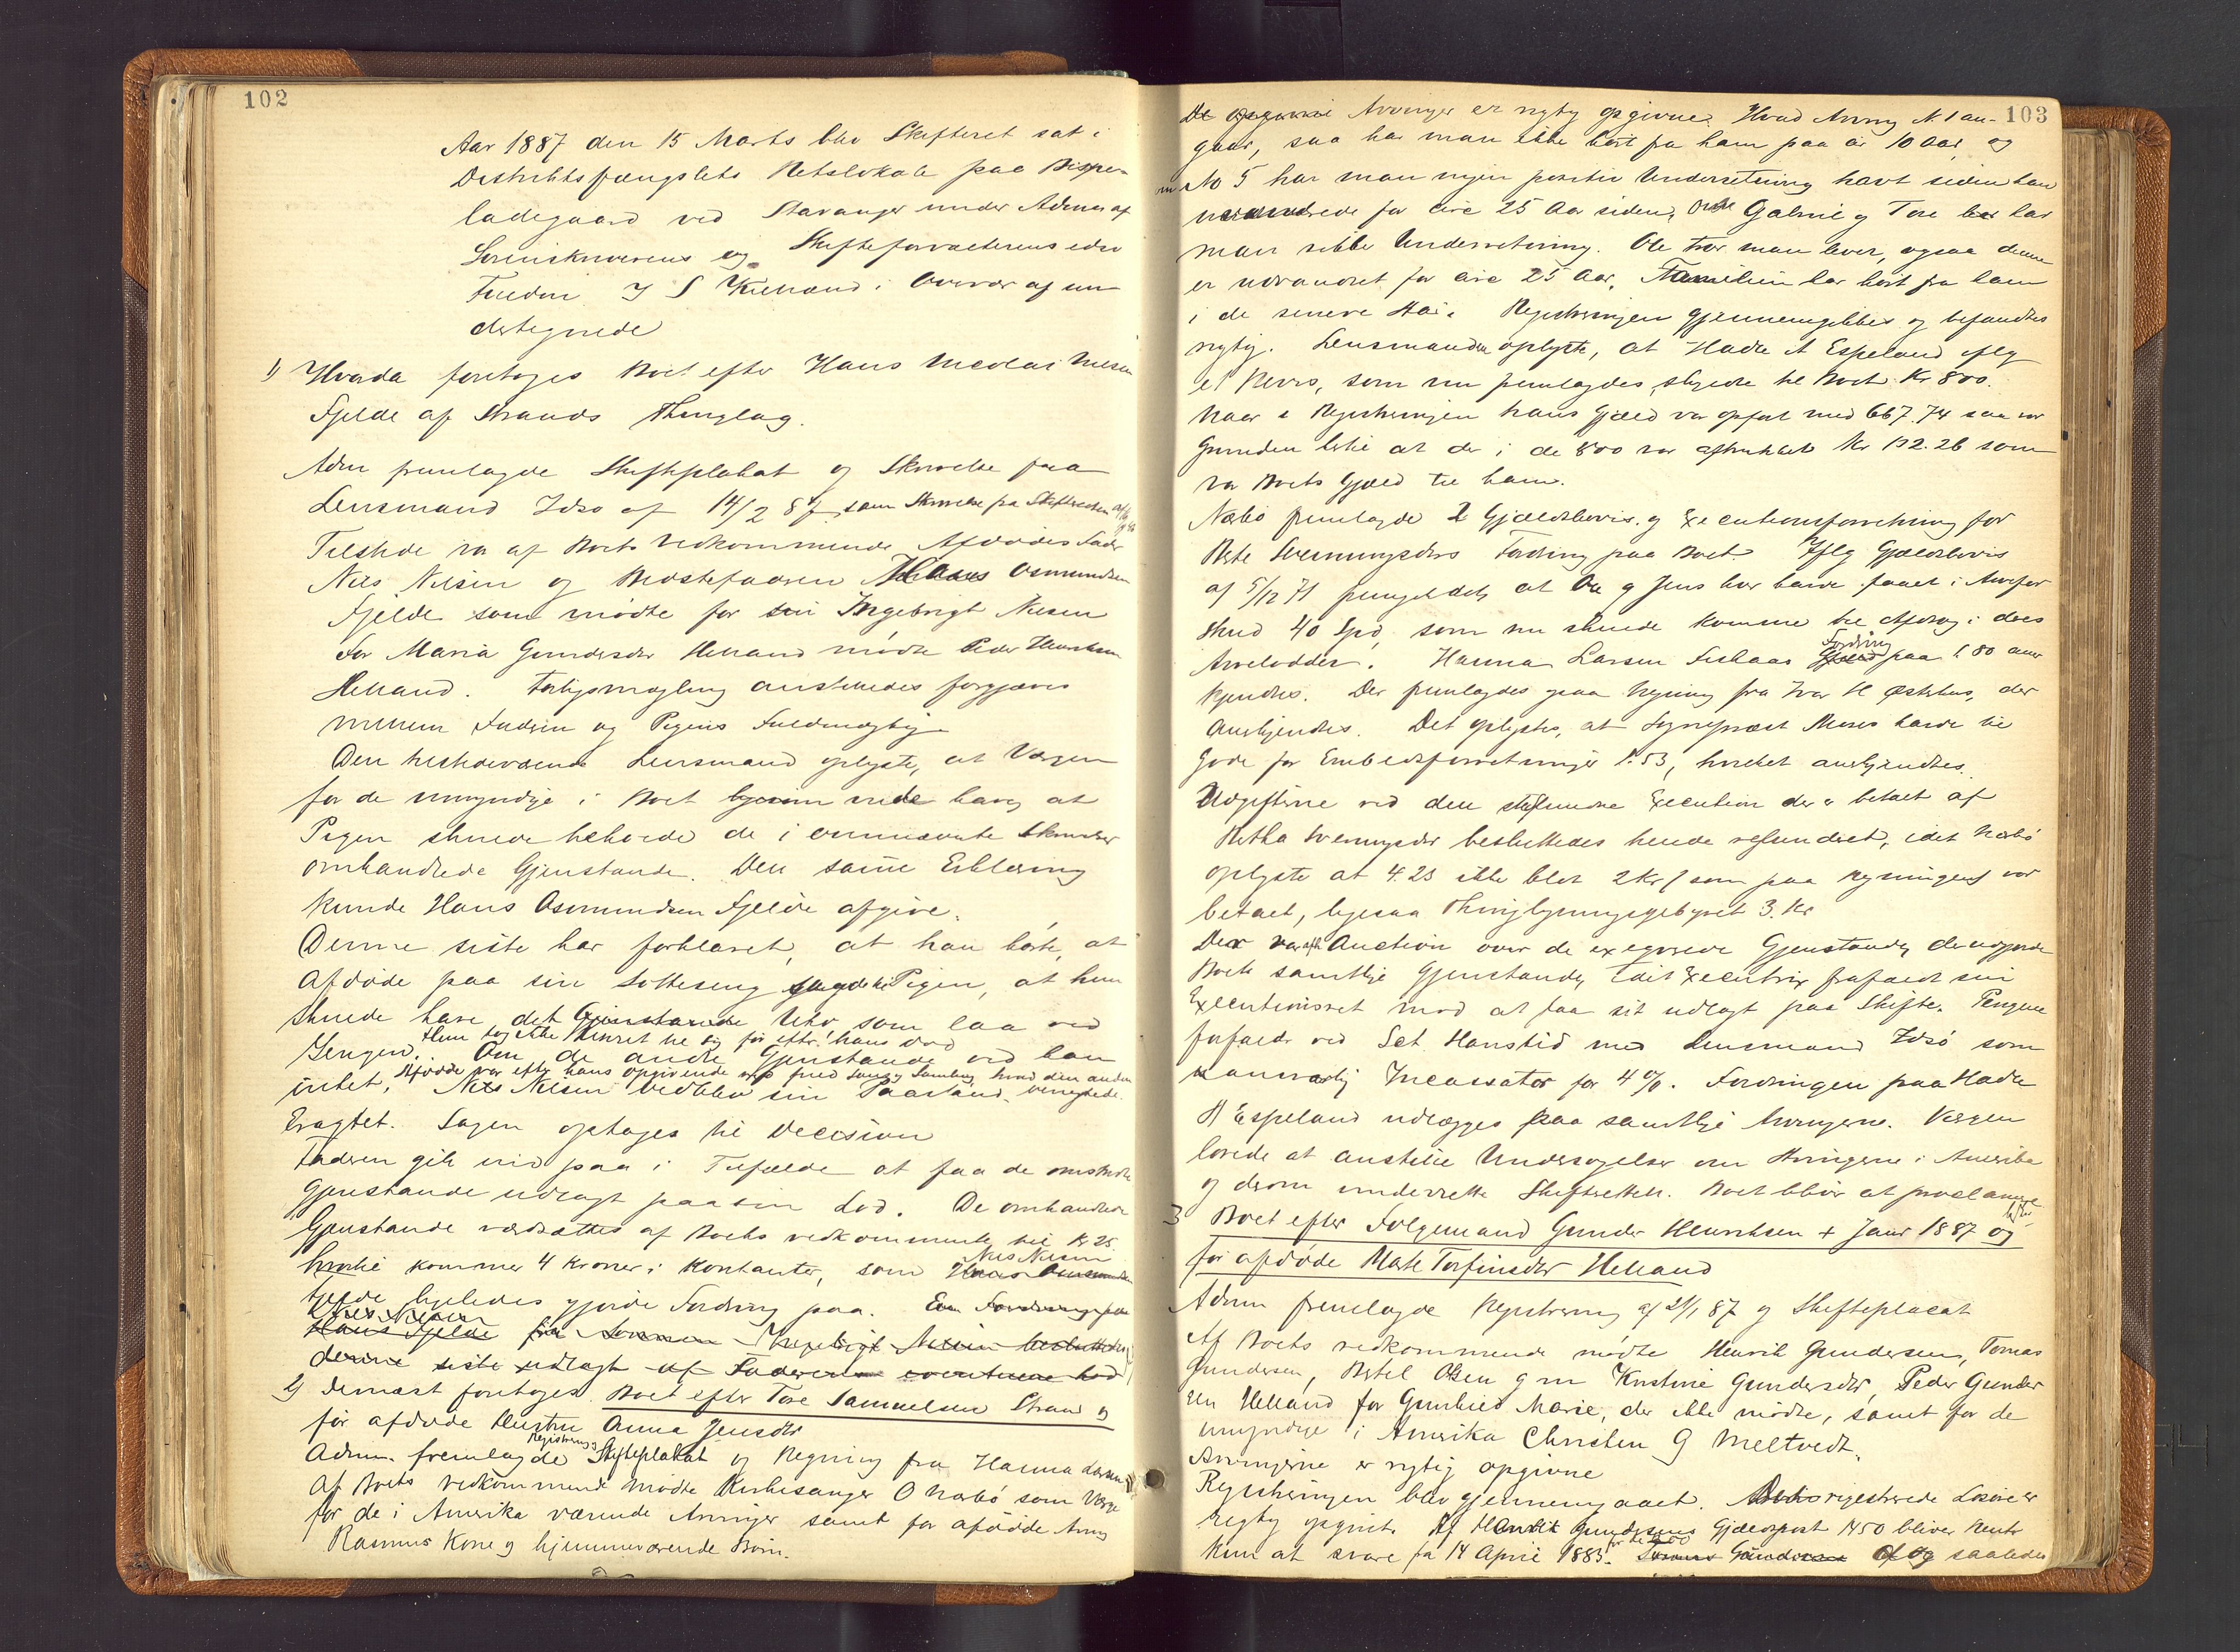 102
Aar 1887 den 15 Marts blev Skifteret sat i
Distriktsfængslets Retslokale paa Bispe-
ladegaard ved Stavanger under Adm af
Sorenskriverens og Skifteforvalterens edsv
Fuldm J S Kielland i Overvær af un
dertegnede
1) Hvorda foretoges Boet efter Hans Nicolai Nilsen
Fjelde af Strands Thinglag.
Adm fremlagde Skifteplakat og Skrivelse fra
Lensmand Idsø af 14/2 87, samt Skrivelse fra Skifteretten
Tilstede var af Boets Vedkommende Afdødes Fader
Nils Nilsen og Bedstefaderen Hans Osmundsen
Fjelde som mødte for Ingebrigt Nilsen
For Maria Gundersdr Helland mødte Peder Henriksen
Helland. Forligsmægling anstilledes forgjæves
mellem Faderen og Pigens Fuldmægtig
Den tilstedeværende Lensmand oplyste, at Værgen
for de umyndige i Boet hav, at
Pigen skulde beholde de i ommeldte Skrivelser
omhandlede Gjenstande. Den samme Erklæring
kunde Hans Osmundsen Fjelde afgive.
Denne siste har forklaret, at han hørte, at
Afdøde paa sin Sotteseng sagde til Pigen, at hun
skulde have det Gjenstande Uhr som laa ved
Sengen. Hun tog ikke Uhret til sig før efter hans død
Om de andre Gjenstande ved han
intet. Afdøde var efter hans opgivende ved fuld Sans og Samling, hvad den anden benegtede.
Nils Nilsen vedblev sin Paastand.
Eragtet. Sagen optages til Decision
Faderen gik ind paa i Tilfælde at faa de omstridte
Gjenstande udlagt paa sin Lod. De omhandlede
Gjenstande værdsattes af Boets vedkommende til Kr 25
hvortil kommer 4 Kroner i Kontanter, som Nils Nilsen
Fjelde ligeledes gjorde Fordring paa. En Fordring paa
Nils Nilsen
Hans Fjelde fra Sønnen Ingebrigt Nilsen besluttedes
denne siste udlagt af Faderens eventuelle Lod
2) Dernæst foretoges Boet efter Tore Samuelsen Strand og
før afdøde Hustru Anna Jensdtr
Adm. fremlagde Registrering Skifteplakat og Regning fra Hanna Larsen
Af Boets vedkommende mødte Kirkesanger O Næbø som Værge
for de i Amerika værende Arvinger samt for afdøde Arving
Rasmus Kone og hjemmeværende Børn.
103
De opgivne Arvinger er rigtig opgivne. Hvad Arving N. 1 an-
gaar, saa har man ikke hørt fra ham paa ca 10 Aar, og
om No 5 har man ingen positiv Underretning havt siden han
udvandrede for circa 25 Aar siden. Om Gabriel og Tore har
man sikker Underretning. Ole tror man lever, ogsaa denne
er udvandret for circa 25 Aar. Familien har hørt fra ham
i de senere Aar. Registreringen gjennemgikkes og befandtes
rigtig. Lensmanden oplyste, at Hadle A Espeland iflg
et Bevis, som nu fremlagdes, skyldte til Boet Kr 800.
Naar i Registreringen hans Gjæld var opført med 667.74 saa var
Grunden dertil at der i de 800 var aftrukket Kr 132.26 som
var Boets Gjæld til ham.
Næbø fremlagde 2 Gjældsbevis og Executionsforretning for
Berte Sveinungsdtrs Fordring paa Boet. Iflg Gjældsbevis
af 5/12 71 fremgik det, at Ole og Jens hver havde faaet i Arvefor
skud 40 Spd, som nu skulde komme til Afdrag i deres
Arvelodder. Hanna Larsen Fiskaas Fordring paa 1.80 aner
kjendtes. Der fremlagdes ogsaa Regning fra Ivar H Østhus, der
anerkjendtes. Det oplystes, at Sogneprest Moses havde til
gode for Embedsforretninger 1.53, hvilket anerkjendtes.
Udgifterne ved den stedfundne Execution der er betalt af
Bertha Sveinungsdtr besluttedes hende refunderet, idet Næbø
oplyste at 4.23 ikke blot 2 Kr (som paa Regningen) var
betalt, ligesaa Thinglysningsgebyret 3. Kr
Der var afh Auction over de exeqverede Gjenstande, der udgjorde
Boets samtlige Gjenstande, idet Executrix frafaldt sin
Executionsret mod at faa sit udlagt paa Skifte. Pengene
forfaldt ved Sct. Hanstid med Lensmand Idsø som
uansvarlig Incassator for 4 %. Fordringen paa Hadle
A Espeland udlægges paa samtlige Arvingerne. Værgen
lovede at anstille Undersøgelser om Arvingerne i Amerika
og derom underrette Skifteretten. Boet blir at proclamere
3 Boet efter Følgemand Gunder Henriksen + Janr 1887 og hustru
før afdøde Marte Torfinsdtr Helland
Adm fremlagde Registrering af 21/1 87 og Skifteplacat
Af Boets vedkommende mødte Henrik Gundersen, Tomas
Gundersen, Bertel Olsen g m Kristine Gundersdtr, Peder Gunder
sen Helland for Gunhild Marie, der ikke mødte, samt for de
umyndige i Amerika Christen G Meltvedt.
Arvingerne er rigtig opgivne
Registreringen blev gjennemgaaet. Boets registrerede Løsøre er
rigtig opgivet. Af Henrik Gundersens Gjældspost 1450 bliver Rente
kun at svare fra 14 April 1883. Tomas Gundersen Ol og saaledes